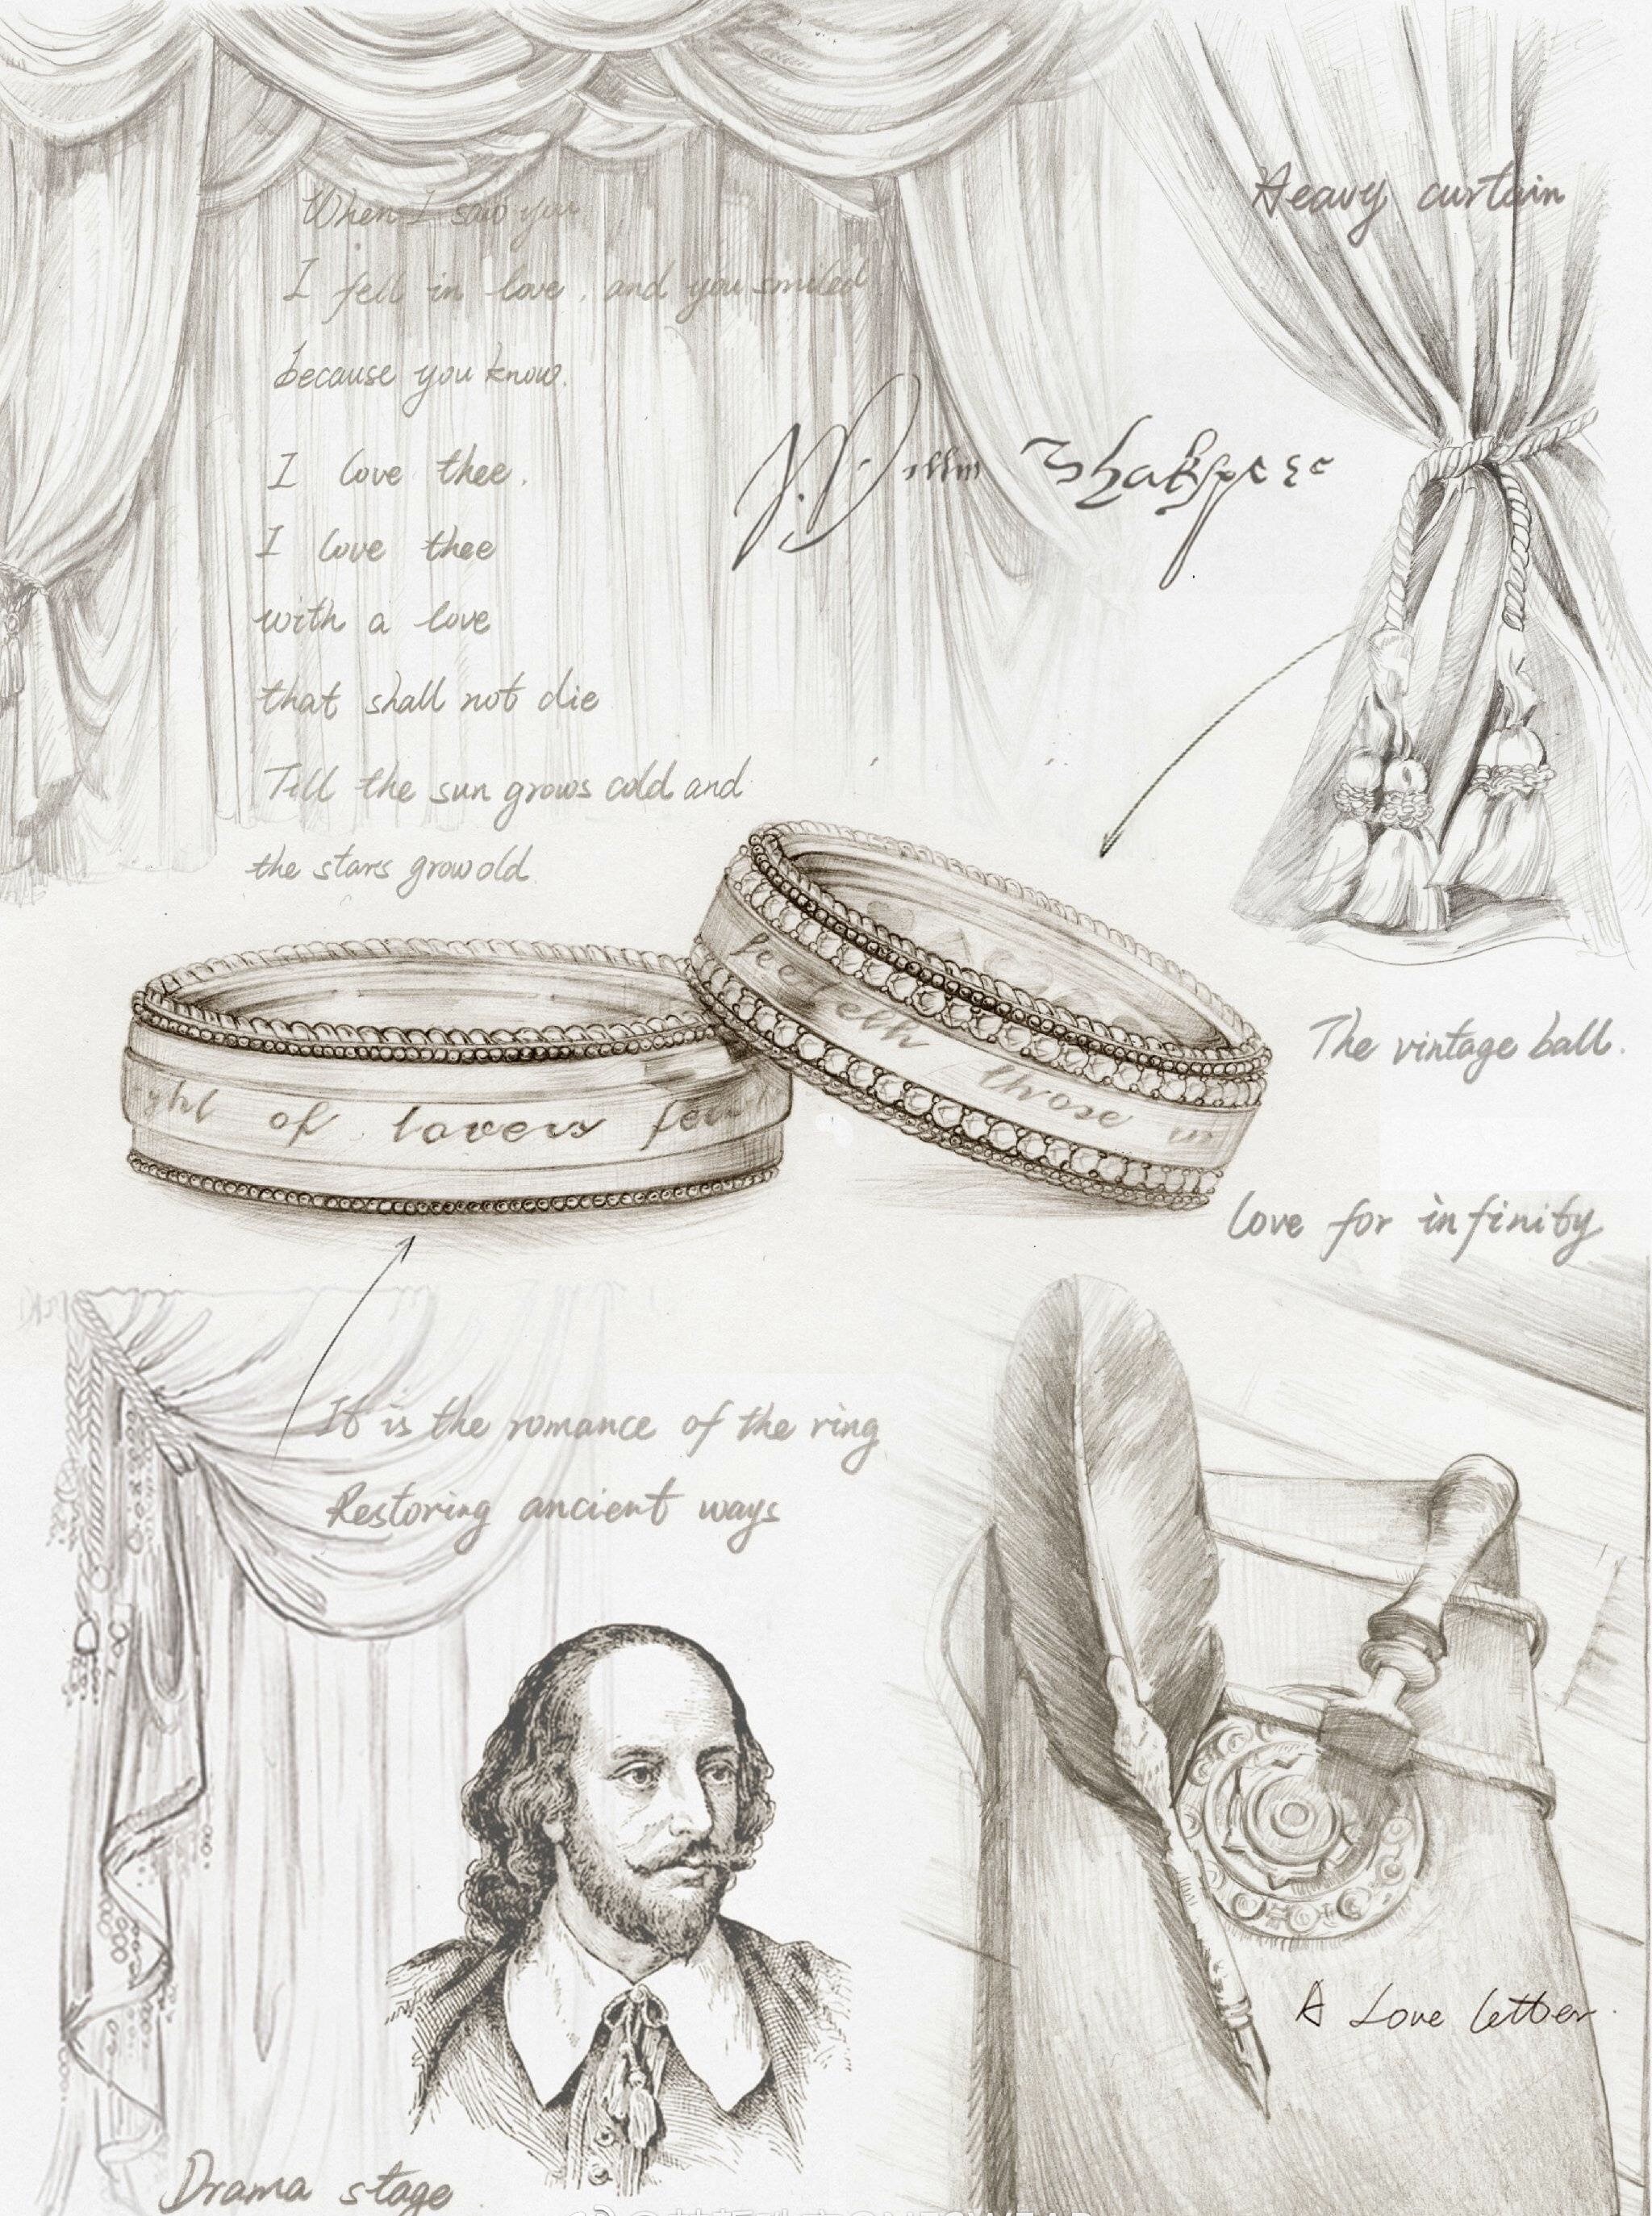 Heavy curtain
When I saw you
I fell in love, and you smiled
because you know.
I love thee.
I love thee
with a love
that shall not die
Till the sun grows cold and
the stars grow old.
of lovers
those
The vintage ball.
love for infinity
It is the romance of the ring
Restoring ancient ways
A Love letter.
Drama stage